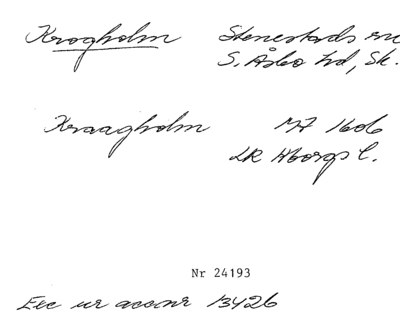 Krogholm Stenestads sn
S. Åsbo hd, Sk.
Kraagholm 177 1606
LR Hborgs l.
Nr 24193
Exc ur accnr 13426